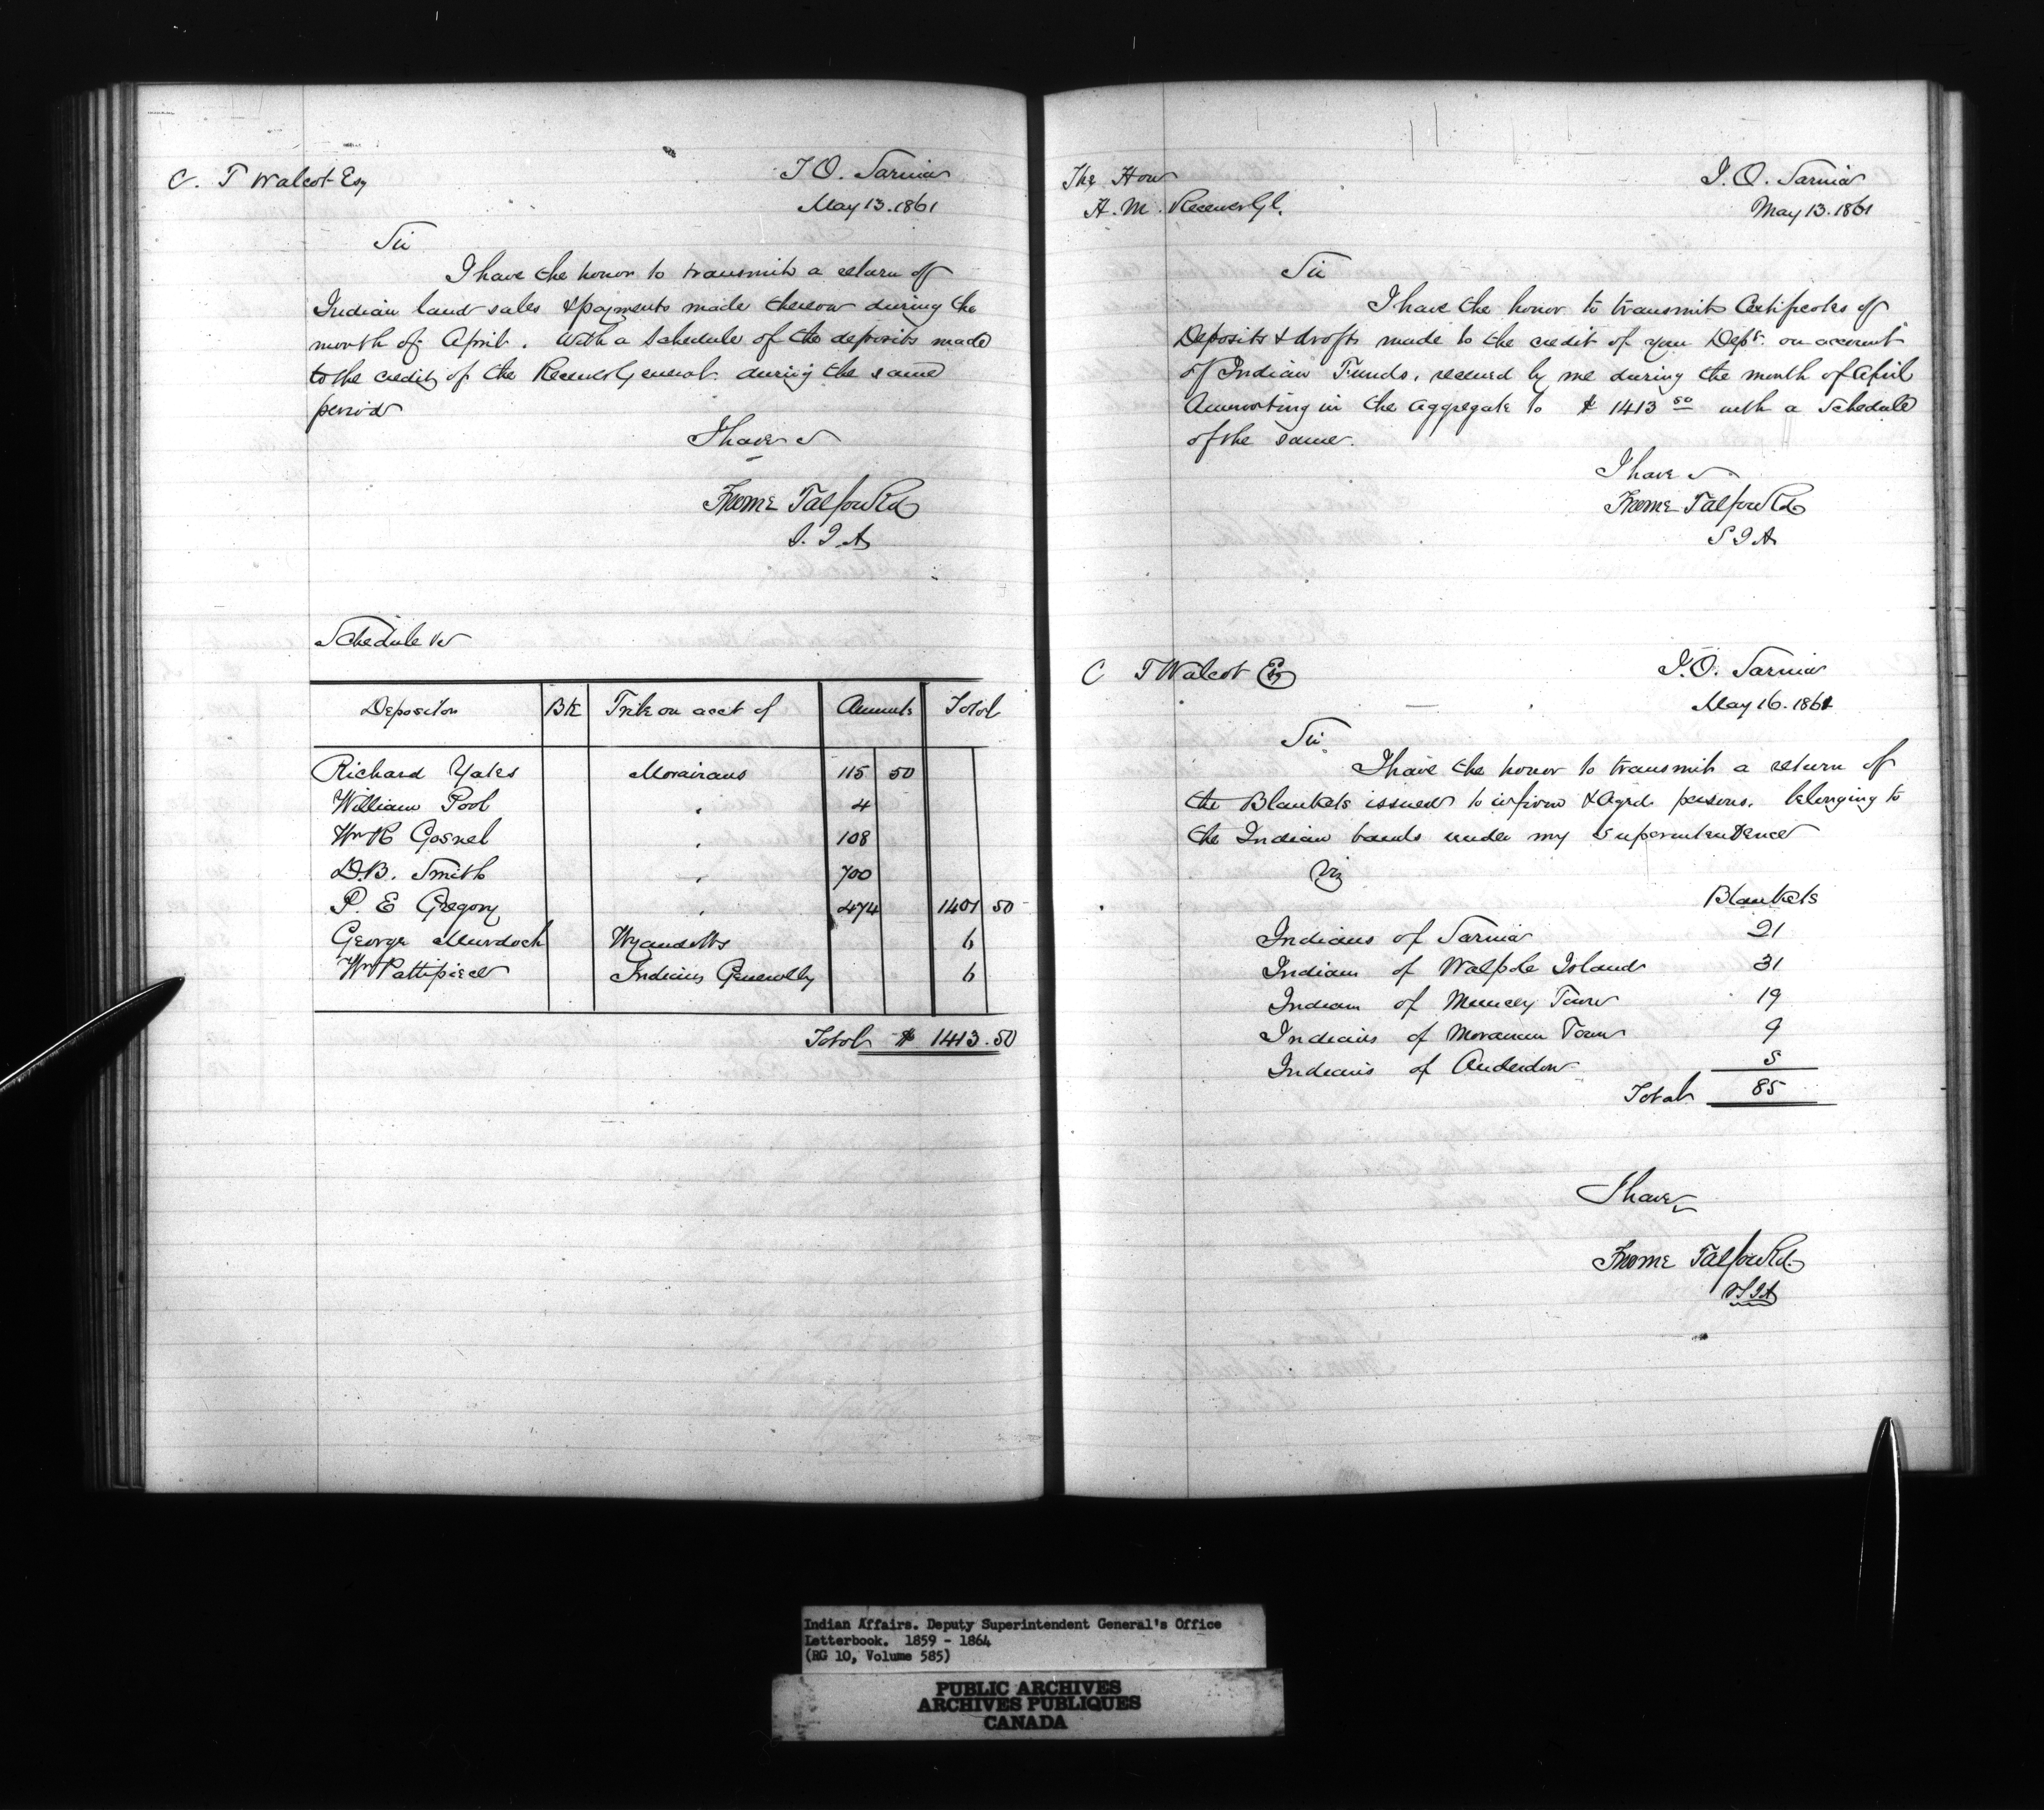 C. T Walcot Esq
I O. Sarnia
May 13. 1861
Sir
I have the honor to transmit a return of
Indian land sales & payments made thereon during the
month of April. With a Schedule of the deposits made
to the credit of the Receiver General during the same
period
I have
Froome Talfourd
S. I. A
Schedule
Depositor Bk Tribe on acct of Amount Total
Richard Yates Moraivans 115 50
William Pool " 4
Wm R Gosnel " 108
D.B. Smith " 700
P. E Gregory " 474 1401 50
George Murdoch Wyandotts 6
Wm Pattipiece Indians Generally 6
Total $ 1413.50
The Hon
H. M. Receiver Gl.
I. O. Sarnia
May 13. 1861
Sir
I have the honor to transmit Certificates of
Deposits & drafts made to the credit of your Dept. on account
of Indian Funds, received by me during the month of April
Amounting in the aggregate to $ 1413 50 with a Schedule
of the same.
I have
Froome Talfourd
S I A
C T Walcot Esq
I. O. Sarnia
May 16. 1861
Sir.
I have the honor to transmit a return of
the Blankets issued to infirm & Aged persons. belonging to
the Indian bands under my Superintendence
Viz
Blankets
Indians of Sarnia 21
Indians of Walpole Island 31
Indians of Muncey Town 19
Indians of Moravian Town 9
Indians of Anderdon 5
Total 85
I have
Froome Talfourd
S I A
Indian Affairs. Deputy Superintendent General's Office
Letterbook. 1859 - 1864
(RG 10, Volume 585)
PUBLIC ARCHIVES
ARCHIVES PUBLIQUES
CANADA